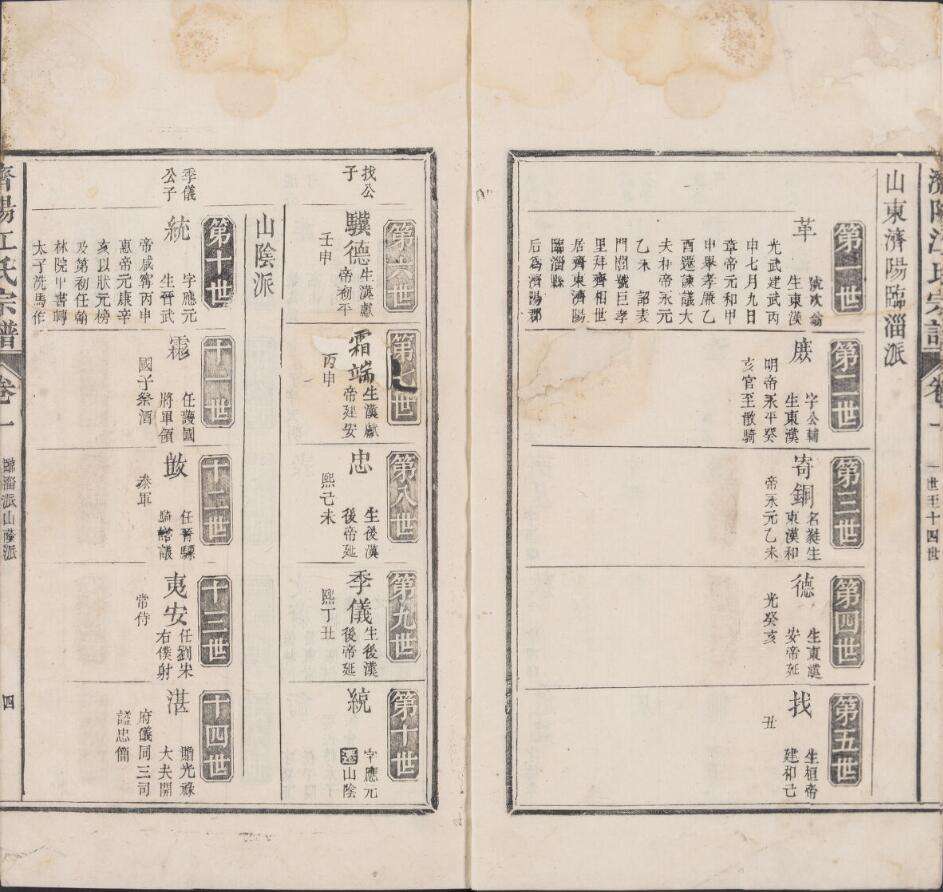 濟陽江氏宗譜
卷一
一世至十四世
山東濟陽臨淄派
第一世
革
號次翁
生東漢
光武建武丙
申七月九日
章帝元和甲
申舉孝廉乙
酉遷諫議大
夫和帝永元
乙未 詔表
門閭號巨孝
里拜齊相世
居齊東濟陽
臨淄縣
后為濟陽郡
第二世
廄
字公輔
生東漢
明帝永平癸
亥官至散騎
第三世
寄銅
名㲀生
東漢和
帝永元乙未
第四世
德
生東漢
安帝延
光癸亥
第五世
找
生桓帝
建和己
丑
找公
子
第六世
驥德
生漢獻
帝初平
壬申
第七世
霜端
生漢獻
帝建安
丙申
第八世
忠
生後漢
後帝延
熙己未
第九世
季儀
生後漢
後帝延
熙丁丑
第十世
統
字應元
遷山陰
山陰派
季儀
公子
第十世
統
字應元
生晉武
帝咸寧丙申
惠帝元康辛
亥以狀元榜
及第初任翰
林院甲書轉
太子洗馬作
十一世
霦
任護國
將軍領
國子祭酒
十二世
敳
任晉驃
騎諮議
參軍
十三世
夷安
任劉宋
右僕射
常侍
十四世
湛
贈光祿
大夫開
府儀同三司
諡忠簡
濟陽江氏宗譜
卷一
臨淄派山陰派
四